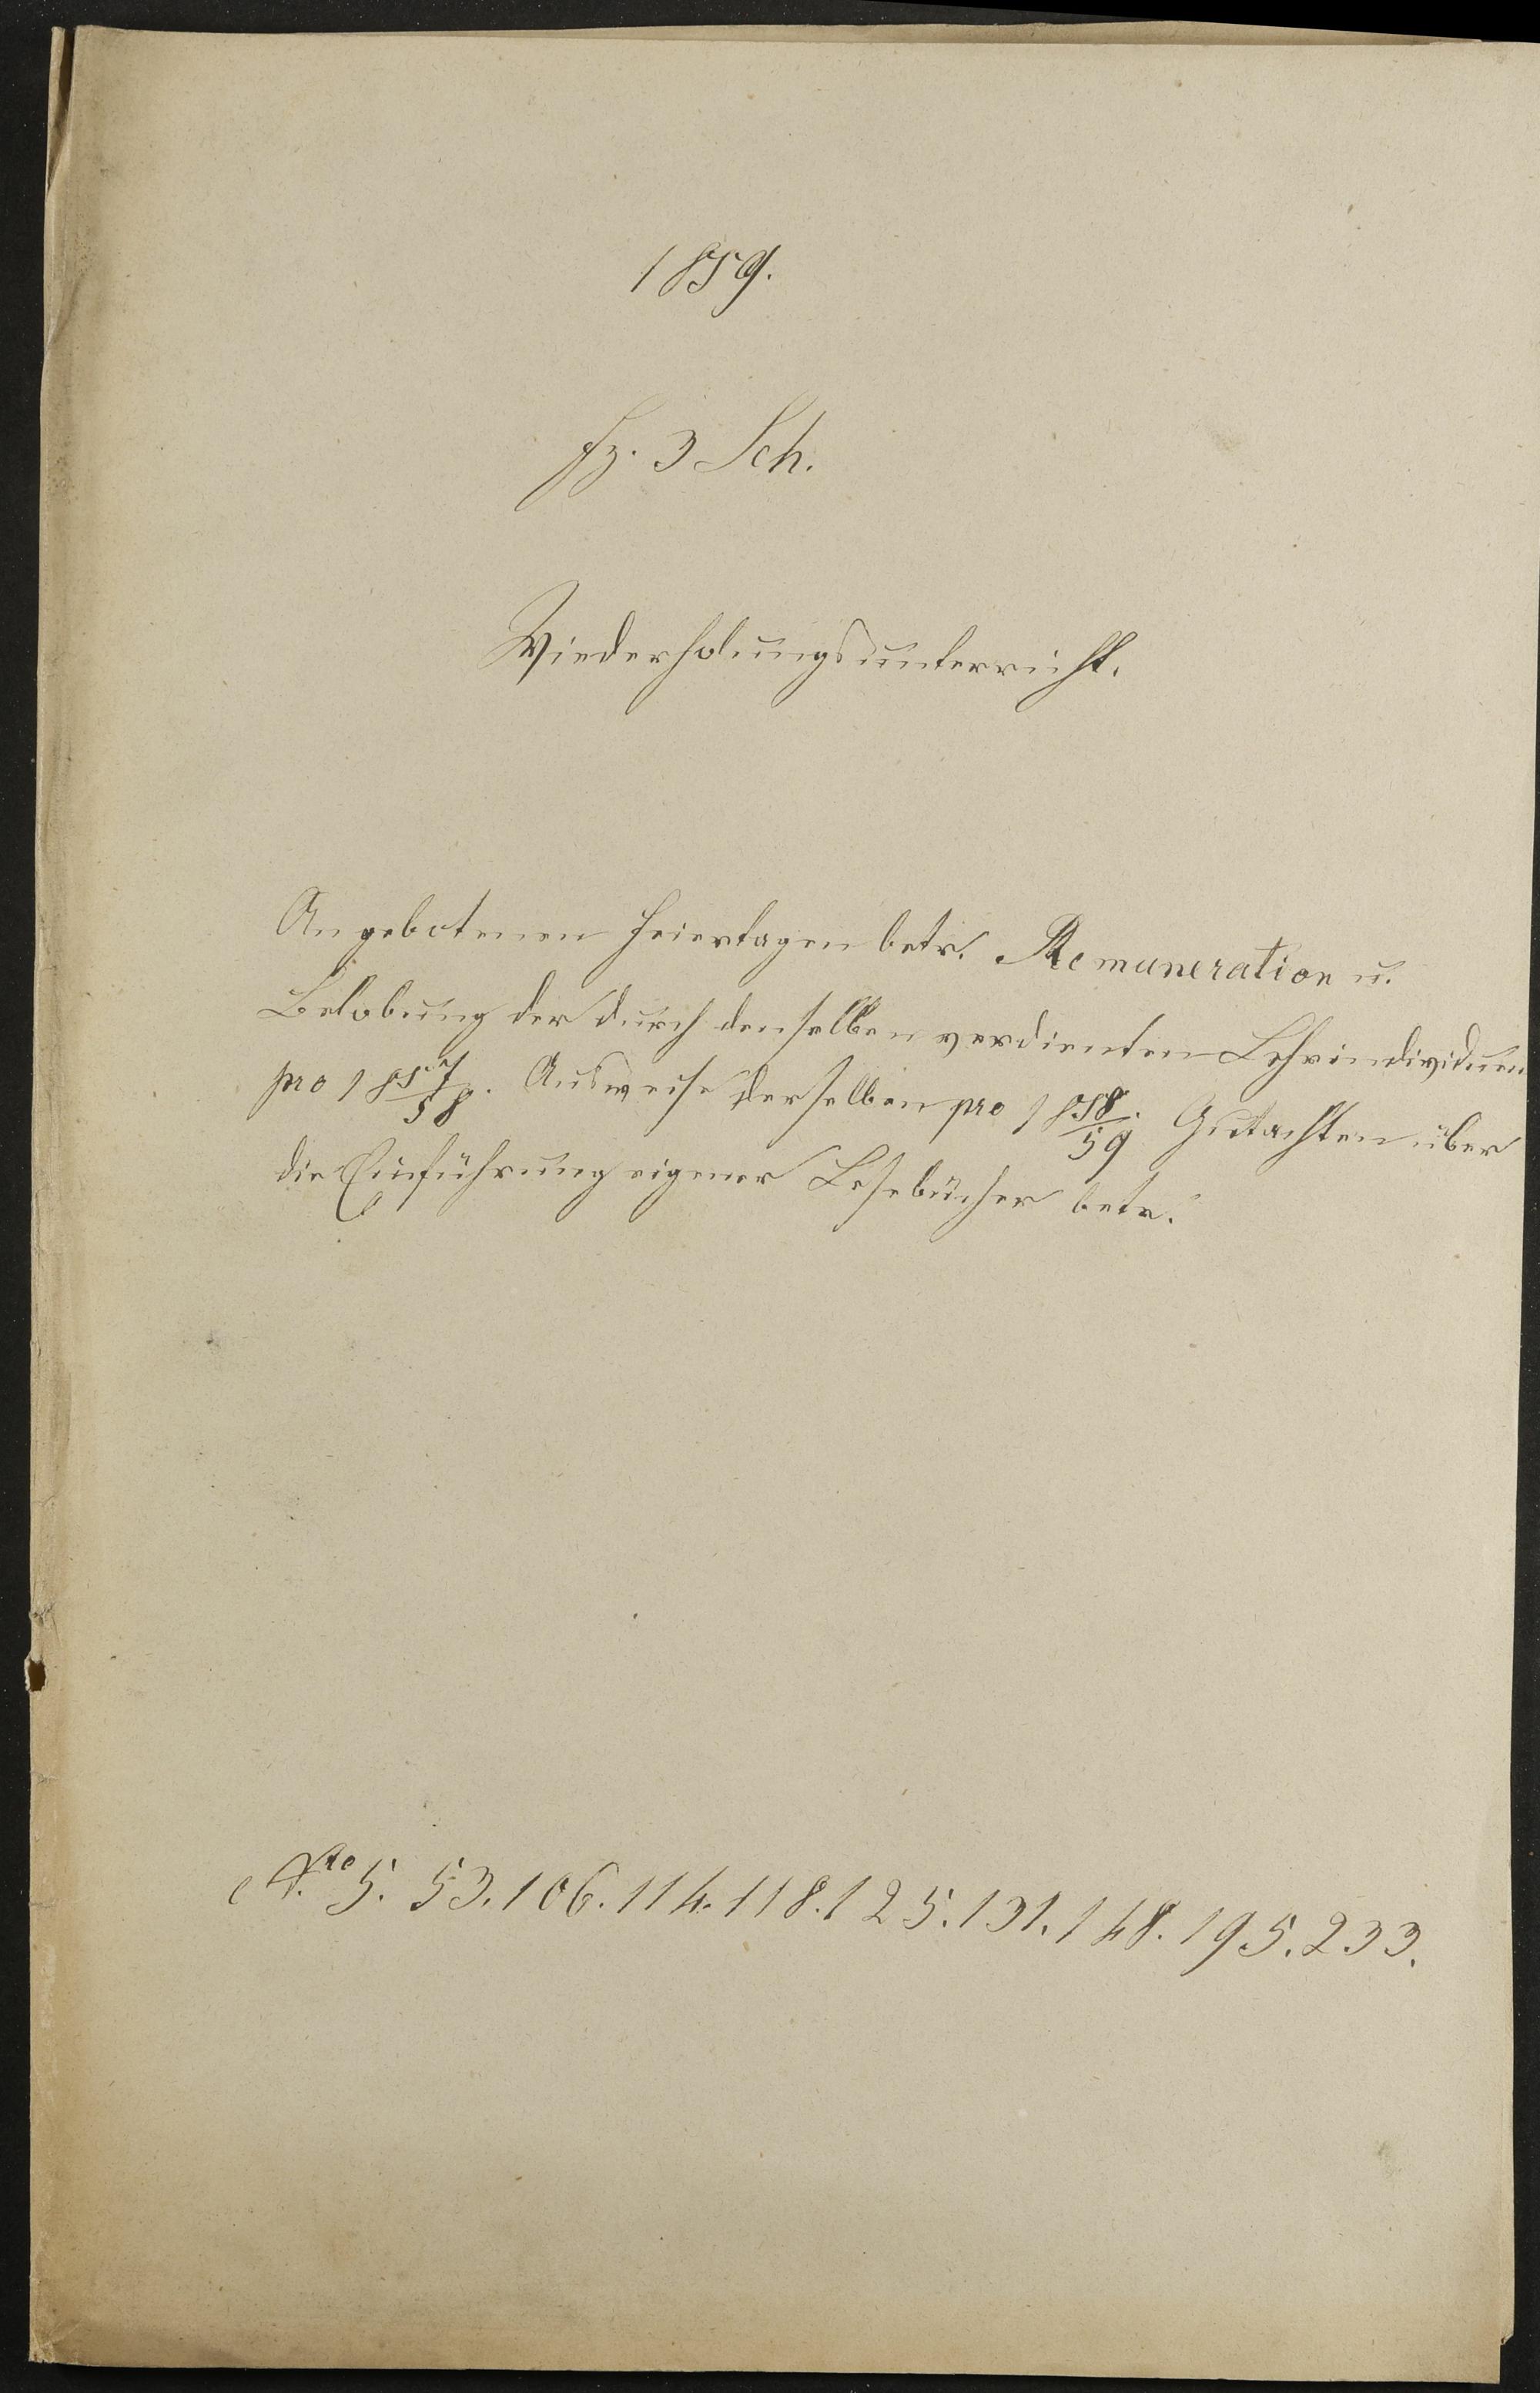 1859.
Fz. 3 Sch.
Wiederholungsunterricht.
An gebotenen Feiertagen betr. Remuneration u.
Belobung der durch denselben verdienten Lehrindividuen
pro 1857/58. Ausweise derselben pro 1858/59. Gutachten über
die Einführung eigener Lesebücher betr.
Nro 5. 53. 106. 114. 118. 125. 131. 148. 195. 233.